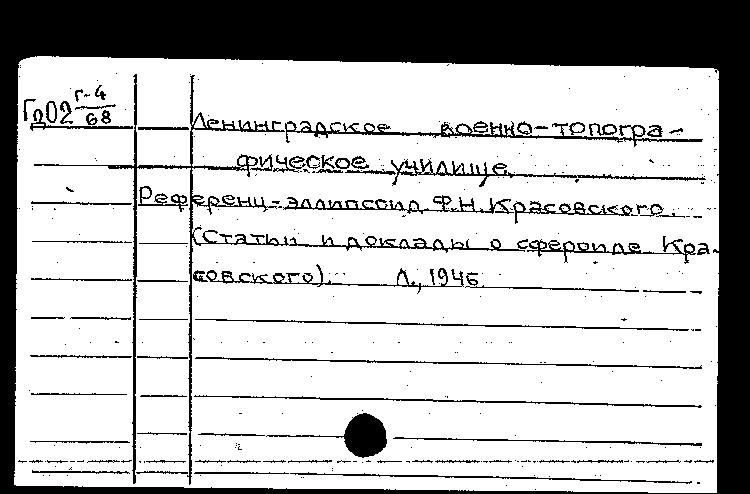 Г202 г-4/68
Ленинградское военно-топогра-
фическое училище.
Референц-эллипсоид Ф.Н.Красовского.
(Статьи и доклады о сфероиде Кра-
совского). Л., 1946